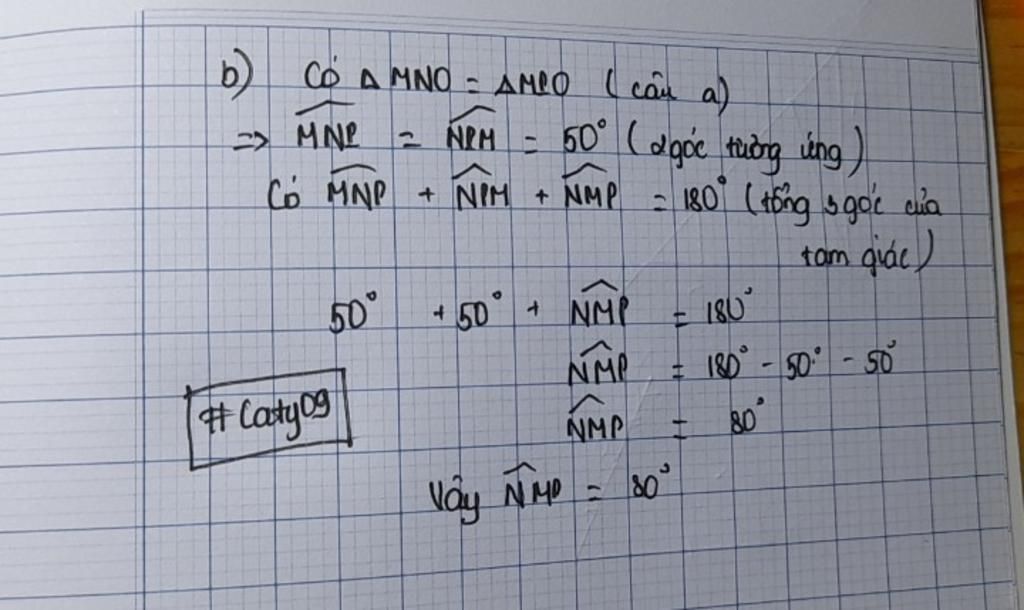 b) Có △MNO = △MPO (câu a)
=> \widehat{MNP} = \widehat{NPM} = 50° (2 góc tương ứng)
Có \widehat{MNP} + \widehat{NPM} + \widehat{NMP} = 180° (tổng 3 góc của
tam giác)
50° + 50° + \widehat{NMP} = 180°
\widehat{NMP} = 180° - 50° - 50°
#Caty09
\widehat{NMP} = 80°
Vậy \widehat{NMP} = 80°